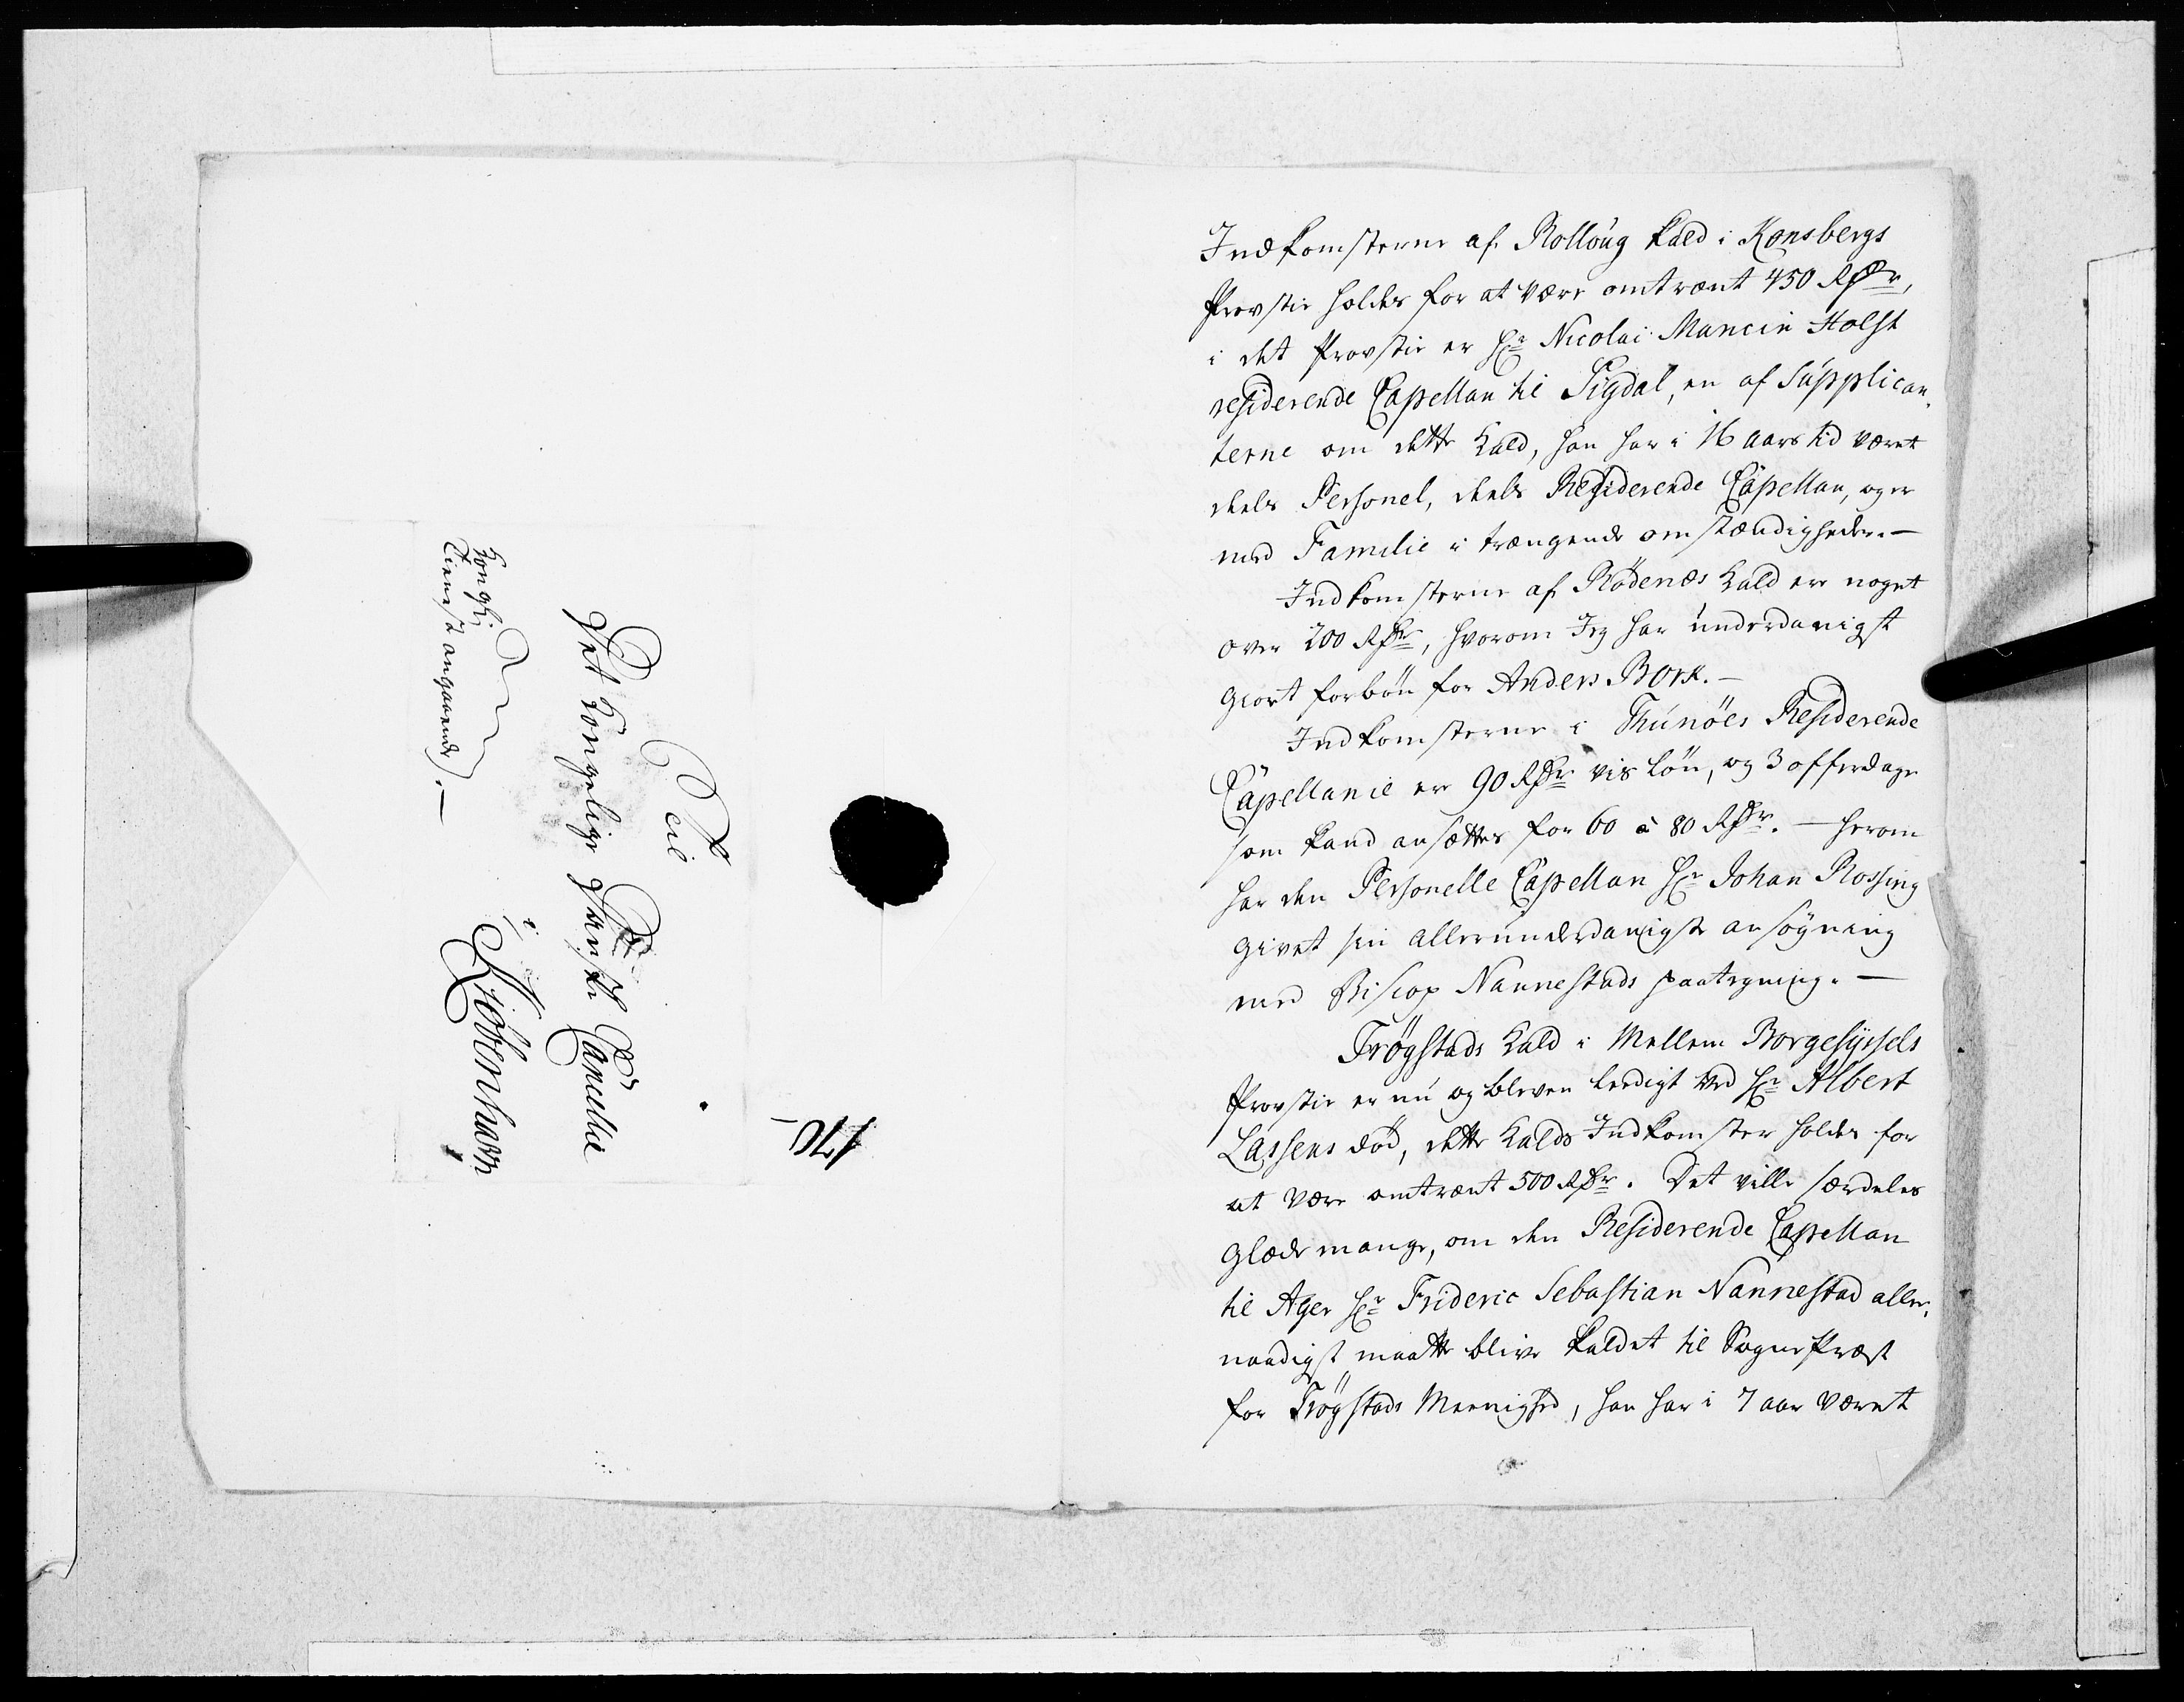 Til
Det Kongelige Danske Cancellie
i Kiöbenhavn
Kongl.
Tieneste angaaende).
170
Indkomsterne af Rolloug Kald i Konsbergs
Provstie holdes for at være omtrænt 450 Rdr,
i det Provstie er Hr Nicolai Mancin Holst
residerende Capellan til Sigdal, en af Supplican-
terne om dette Kald, han har i 16 aars tid været
deels Personel, deels Residerende Capellan, og er
med Familie i trængende omstændigheder. —
Indkomsterne af Rödenæs Kald er noget
over 200 Rdr, hvorom Jeg har underdanigst
giort forbön for Anders Bork. —
Indkomsterne i Thunöes Residerende
Capellanie er 90 Rdr vis Lön, og 3 offerdage
som kand ansættes for 60 à 80 Rdr. — herom
har den Personelle Capellan Hr Johan Rossing
givet sin allerunderdanigste ansögning
med Biscop Nannestads paategning. —
Trögstads Kald i Mellem Borgesyssels
Provstie er nu og bleven leedigt ved Hr Albert
Lassens död, dette Kalds Indkomster holdes for
at være omtrænt 500 Rdr. Det ville særdeles
glæde mange, om den Residerende Capellan
til Ager Hr Frideric Sebastian Nannestad aller-
naadigst maatte blive kaldet til Sogne Præst
for Trögstads Meenighed, han har i 7 aar været